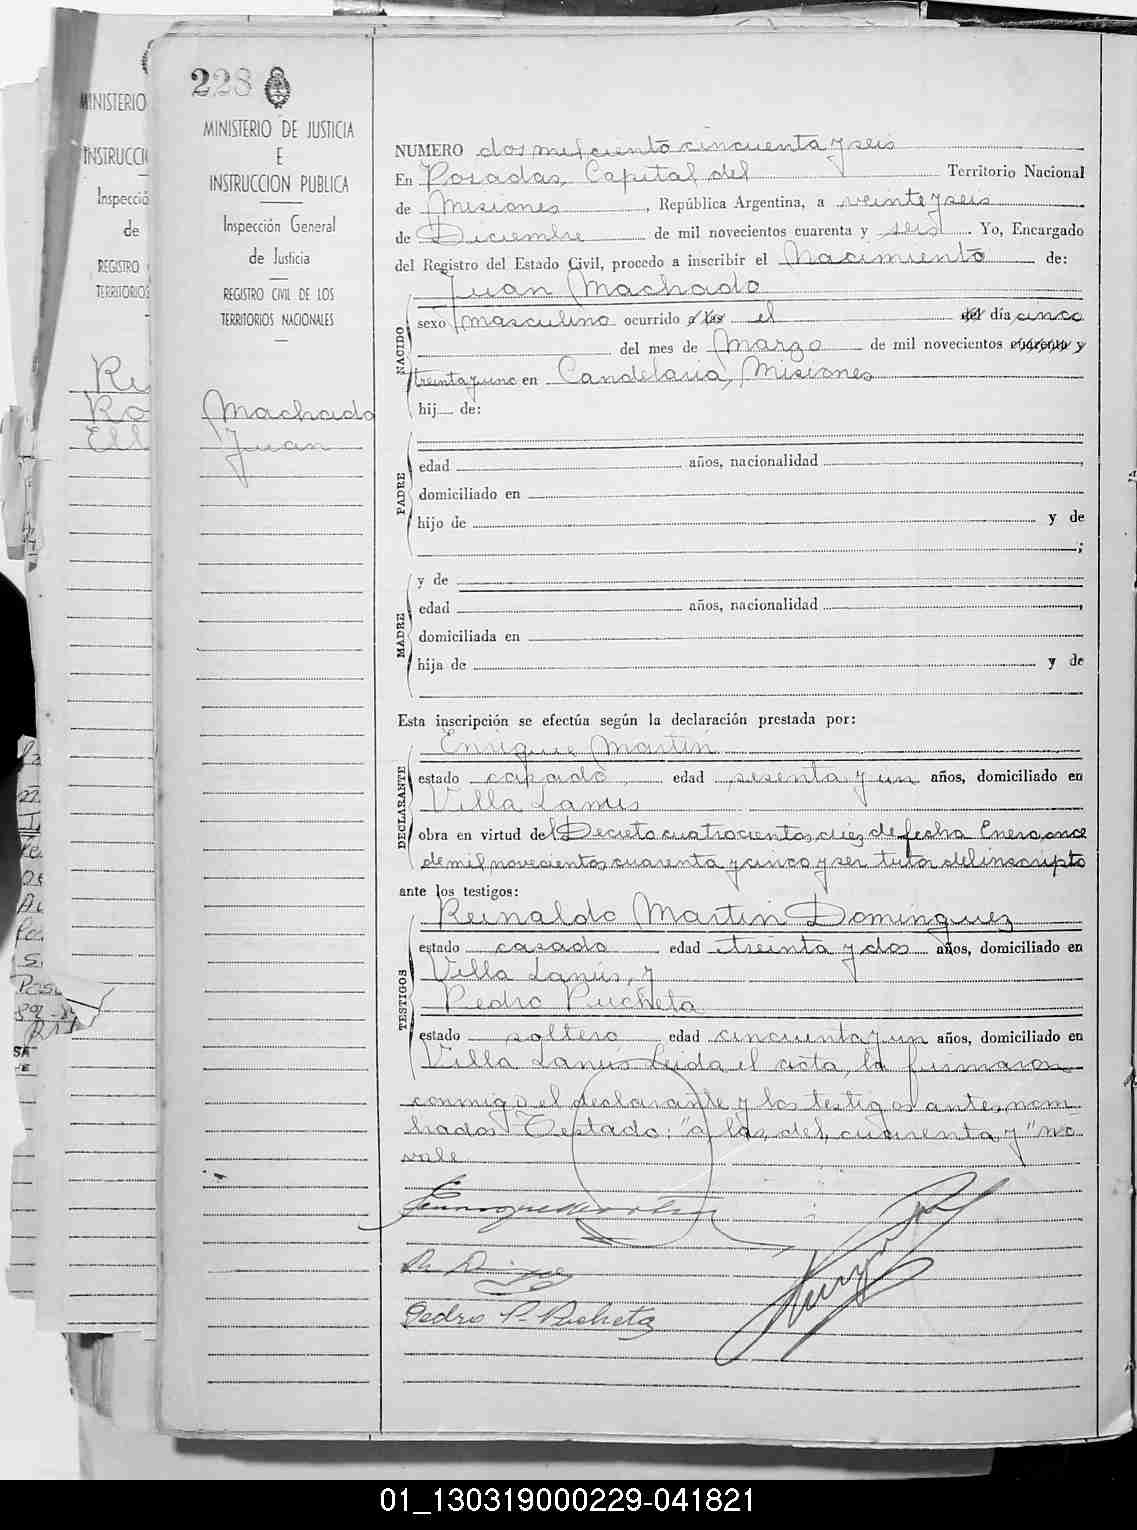 228
MINISTERIO DE JUSTICIA
E
INSTRUCCION PUBLICA
Inspección General
de Justicia
REGISTRO CIVIL DE LOS
TERRITORIOS NACIONALES
Machado
Juan
MINISTERIO
INSTRUCCI
Inspecció
de
REGISTRO
TERRITORIOS
NUMERO dos mil ciento cincuenta y seis
En Posadas, Capital del Territorio Nacional
de Misiones, República Argentina, a veinte y seis
de Diciembre de mil novecientos cuarenta y seis. Yo, Encargado
del Registro del Estado Civil, procedo a inscribir el Nacimiento de:
Juan Machado
NACIDO
sexo masculino ocurrido a las el del día cinco
del mes de Marzo de mil novecientos cuarenta y
treinta y uno en Candelaria, Misiones
hij de:
PADRE
edad años, nacionalidad ,
domiciliado en
hijo de y de
;
MADRE
y de
edad años, nacionalidad ,
domiciliada en
hija de y de
Esta inscripción se efectúa según la declaración prestada por:
DECLARANTE
Enrique Martin
estado casado, edad sesenta y un años, domiciliado en
Villa Lanús
obra en virtud del Decreto cuatrocientos diez de fecha Enero once
de mil novecientos cuarenta y cinco y ser tutor del inscripto
ante los testigos:
TESTIGOS
Reinaldo Martin Dominguez
estado casado edad treinta y dos años, domiciliado en
Villa Lanús, y
Pedro Pucheta
estado soltero edad cincuenta y un años, domiciliado en
Villa Lanús Leida el acta, la firmaron
conmigo el declarante y los testigos antes nom
brados Testado: "a las, del, cuarenta y" no
vale
Pedro P. Pucheta
01_130319000229-041821